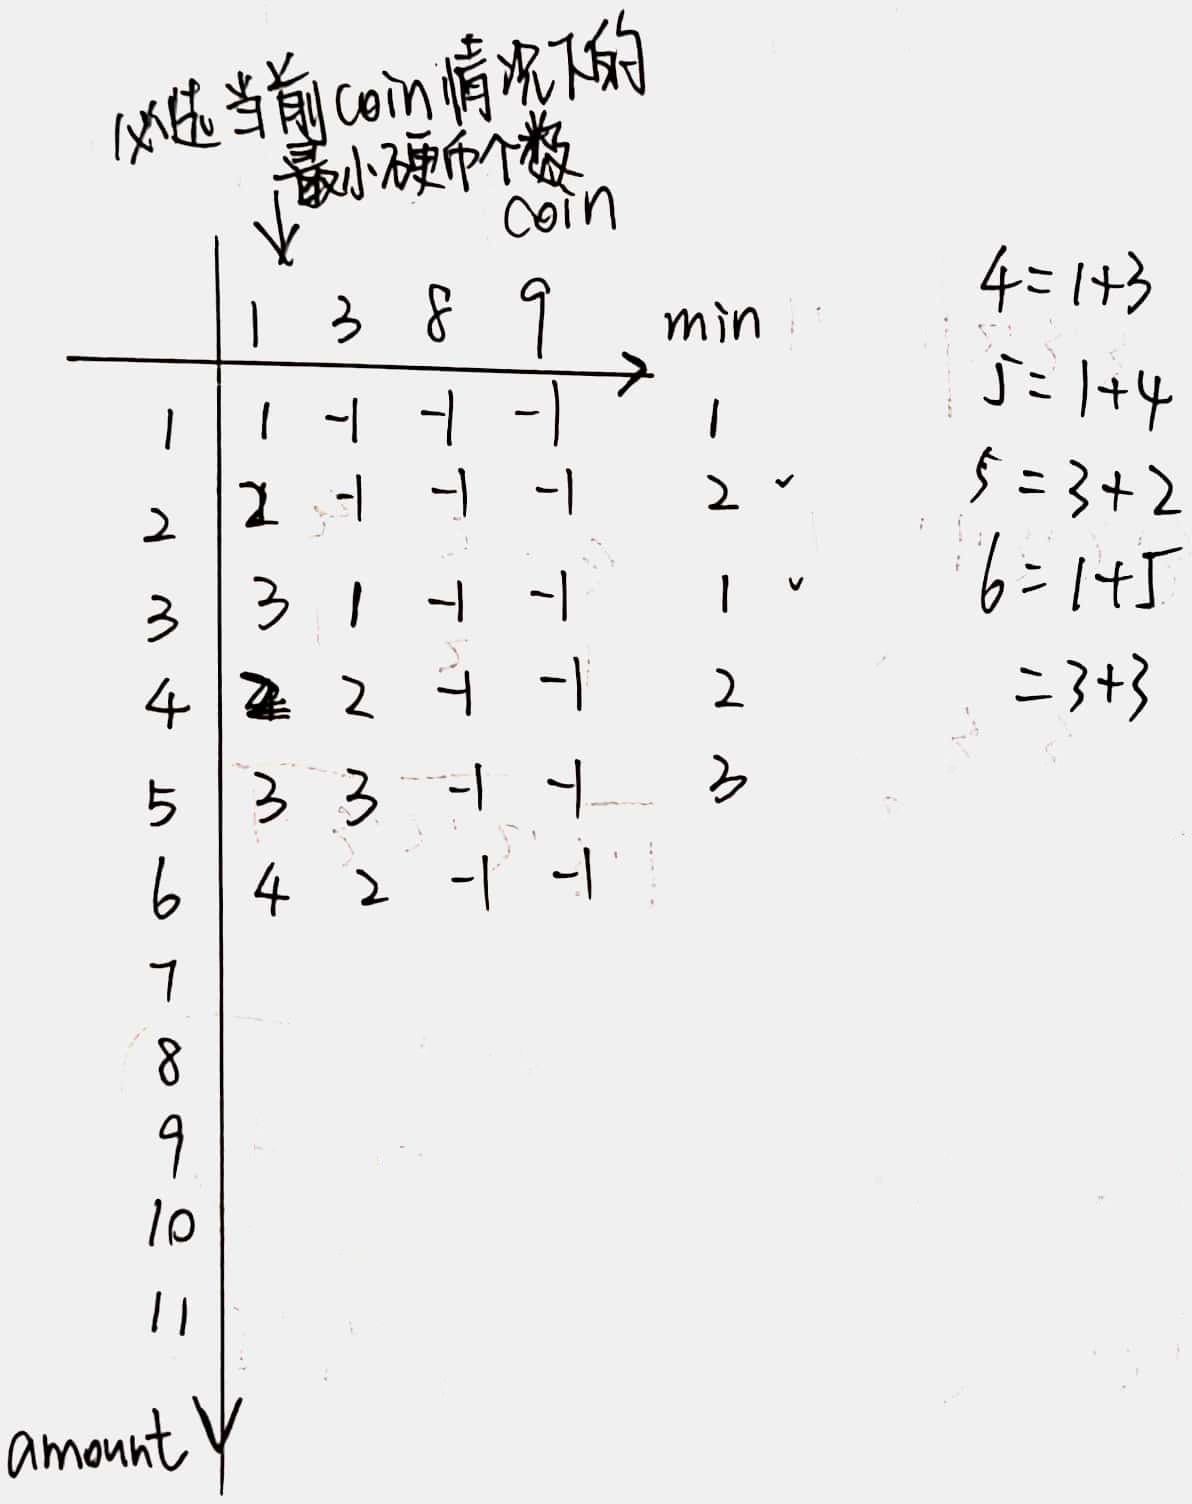 必选当前coin情况下的
最小硬币个数
coin
1 3 8 9 min
1 1 -1 -1 -1 1
2 2 -1 -1 -1 2
3 3 1 -1 -1 1
4 2 2 -1 -1 2
5 3 3 -1 -1 3
6 4 2 -1 -1
7
8
9
10
11
amount
4=1+3
5=1+4
5=3+2
6=1+5
=3+3